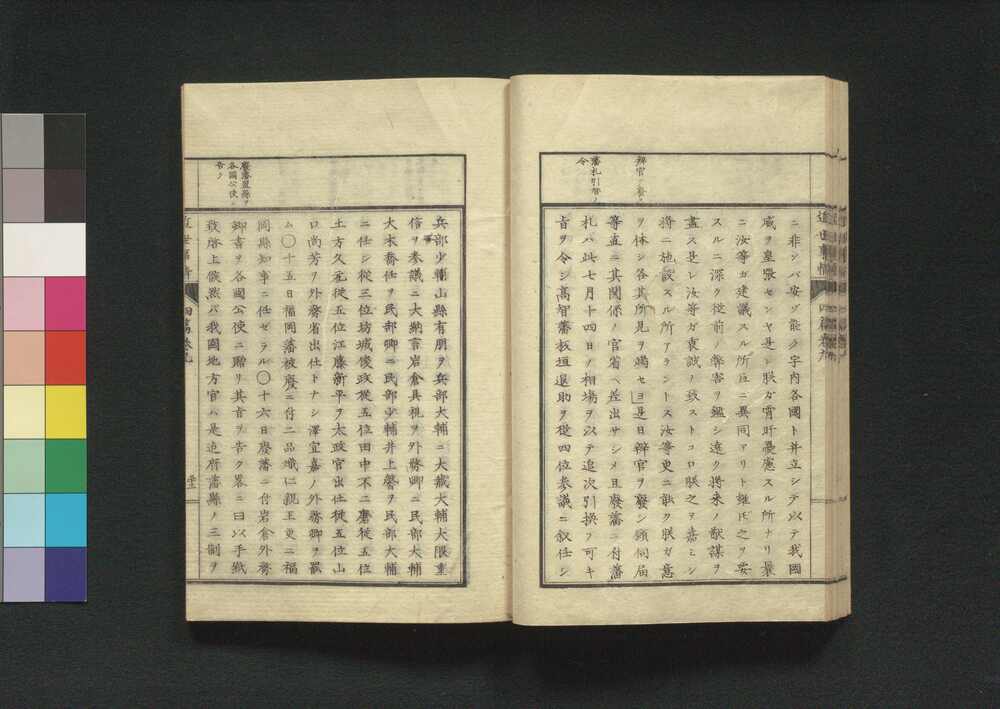 辨官ヲ廢ス
藩札引替ノ
令
ニ非シバ安ソ能ク宇内各國ト并立シテ以テ我國
威ヲ皇張センヤ是レ朕ガ宵旰憂慮スル所ナリ曩
ニ汝等ガ建議スル所互ニ異同アリト雖氏之ヲ要
スルニ深ク從前ノ弊害ヲ鑑シ遠ク將来ノ猷謀ヲ
盡ス是レ汝等ガ衷誠ノ致ストコロ朕之ヲ嘉ミシ
將ニ施設スル所アラントス汝等更ニ能ク朕ガ意
ヲ体シ各其所見ヲ竭セヨ是日辨官ヲ廢シ願伺届
等直ニ其関係ノ官省ヘ差出サシメ且廢藩ニ付藩
札ハ此七月十四日ノ相場ヲ以テ追次引換フ可キ
旨ヲ令シ高智藩板垣退助ヲ從四位参議ニ叙任シ
近世事情
四篇卷九
廢藩置縣ヲ
各國公使ニ
告ク
兵部少輔山縣有朋ヲ兵部大輔ニ大藏大輔大隈重
信ヲ参議ニ大納言岩倉具視ヲ外務卿ニ民部大輔
大木喬任ヲ民部卿ニ民部少輔井上馨ヲ民部大輔
ニ任シ從三位坊城俊政從五位田中不二麿從五位
土方久元從五位江藤新平ヲ太政官出仕從五位山
口尚芳ヲ外務省出仕トナシ澤宣嘉ノ外務卿ヲ罷
ム〇十五日福岡藩被廢ニ付二品熾仁親王更ニ福
岡縣知事ニ任ゼラル〇十六日廢藩ニ付岩倉外務
卿書ヲ各國公使ニ贈リ其旨ヲ告ク畧ニ曰以手紙
致啓上候然バ我國地方官ハ是迄府藩縣ノ三制ヲ
四篇卷九